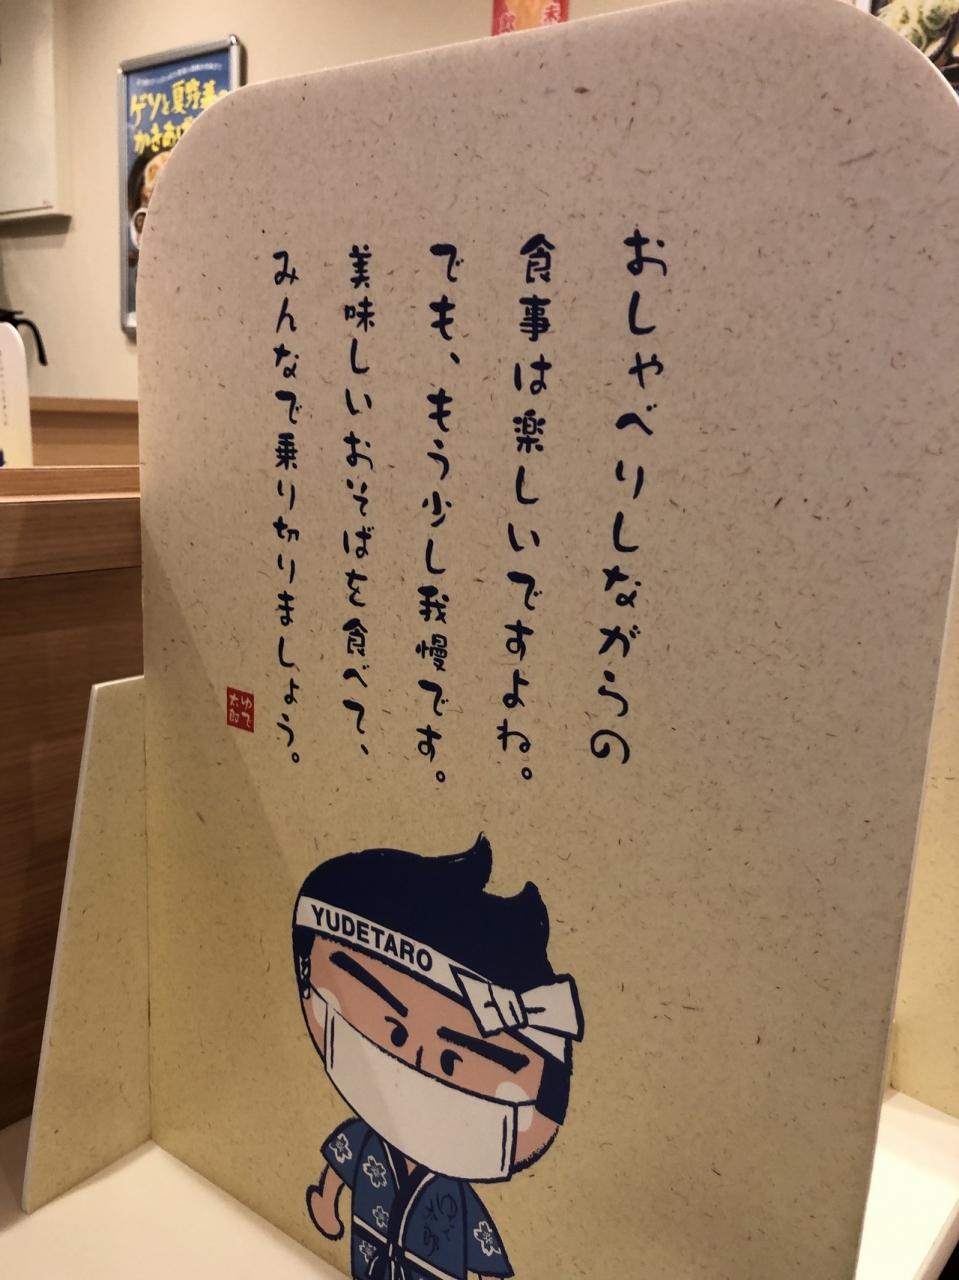 おしゃべりしながらの
食事は楽しいですよね。
でも、もう少し我慢です。
美味しいおそばを食べて、
みんなで乗り切りましょう。
ゆで
太郎
YUDETARO
ゲソと夏野菜の
かきあげ